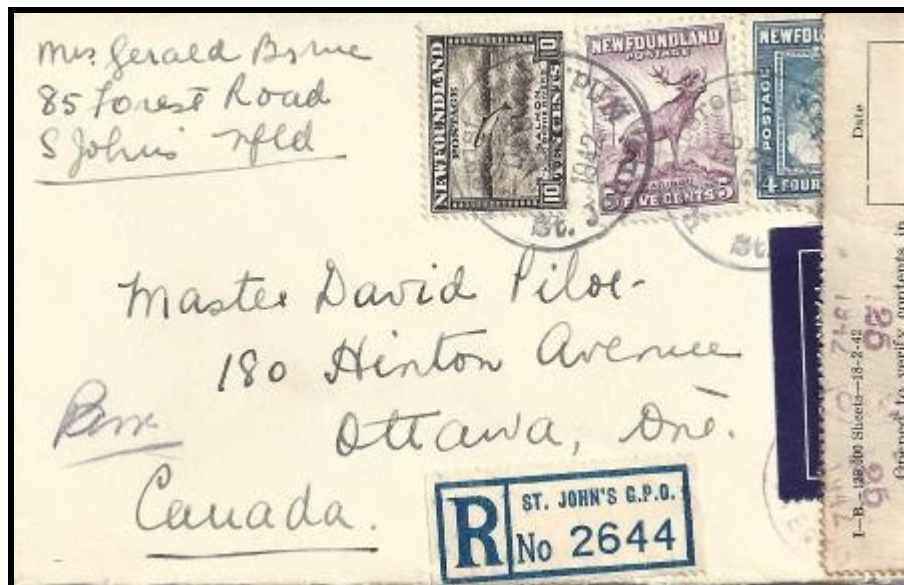 Mrs. Gerald Byrne
85 Forest Road
S Johns Nfld
NEWFOUNDLAND
POSTAGE
10 TEN CENTS 10
NEWFOUNDLAND
POSTAGE
5 FIVE CENTS 5
NEWFOUNDL
POSTAGE
4 FOUR
1942
St. J
St.
Master David Piloe-
180 Hinton Avenue
Ottawa, Ont.
Canada.
R
ST. JOHN'S G.P.O.
No 2644
Date
Opened to verify contents in
Sheets—18-2-42